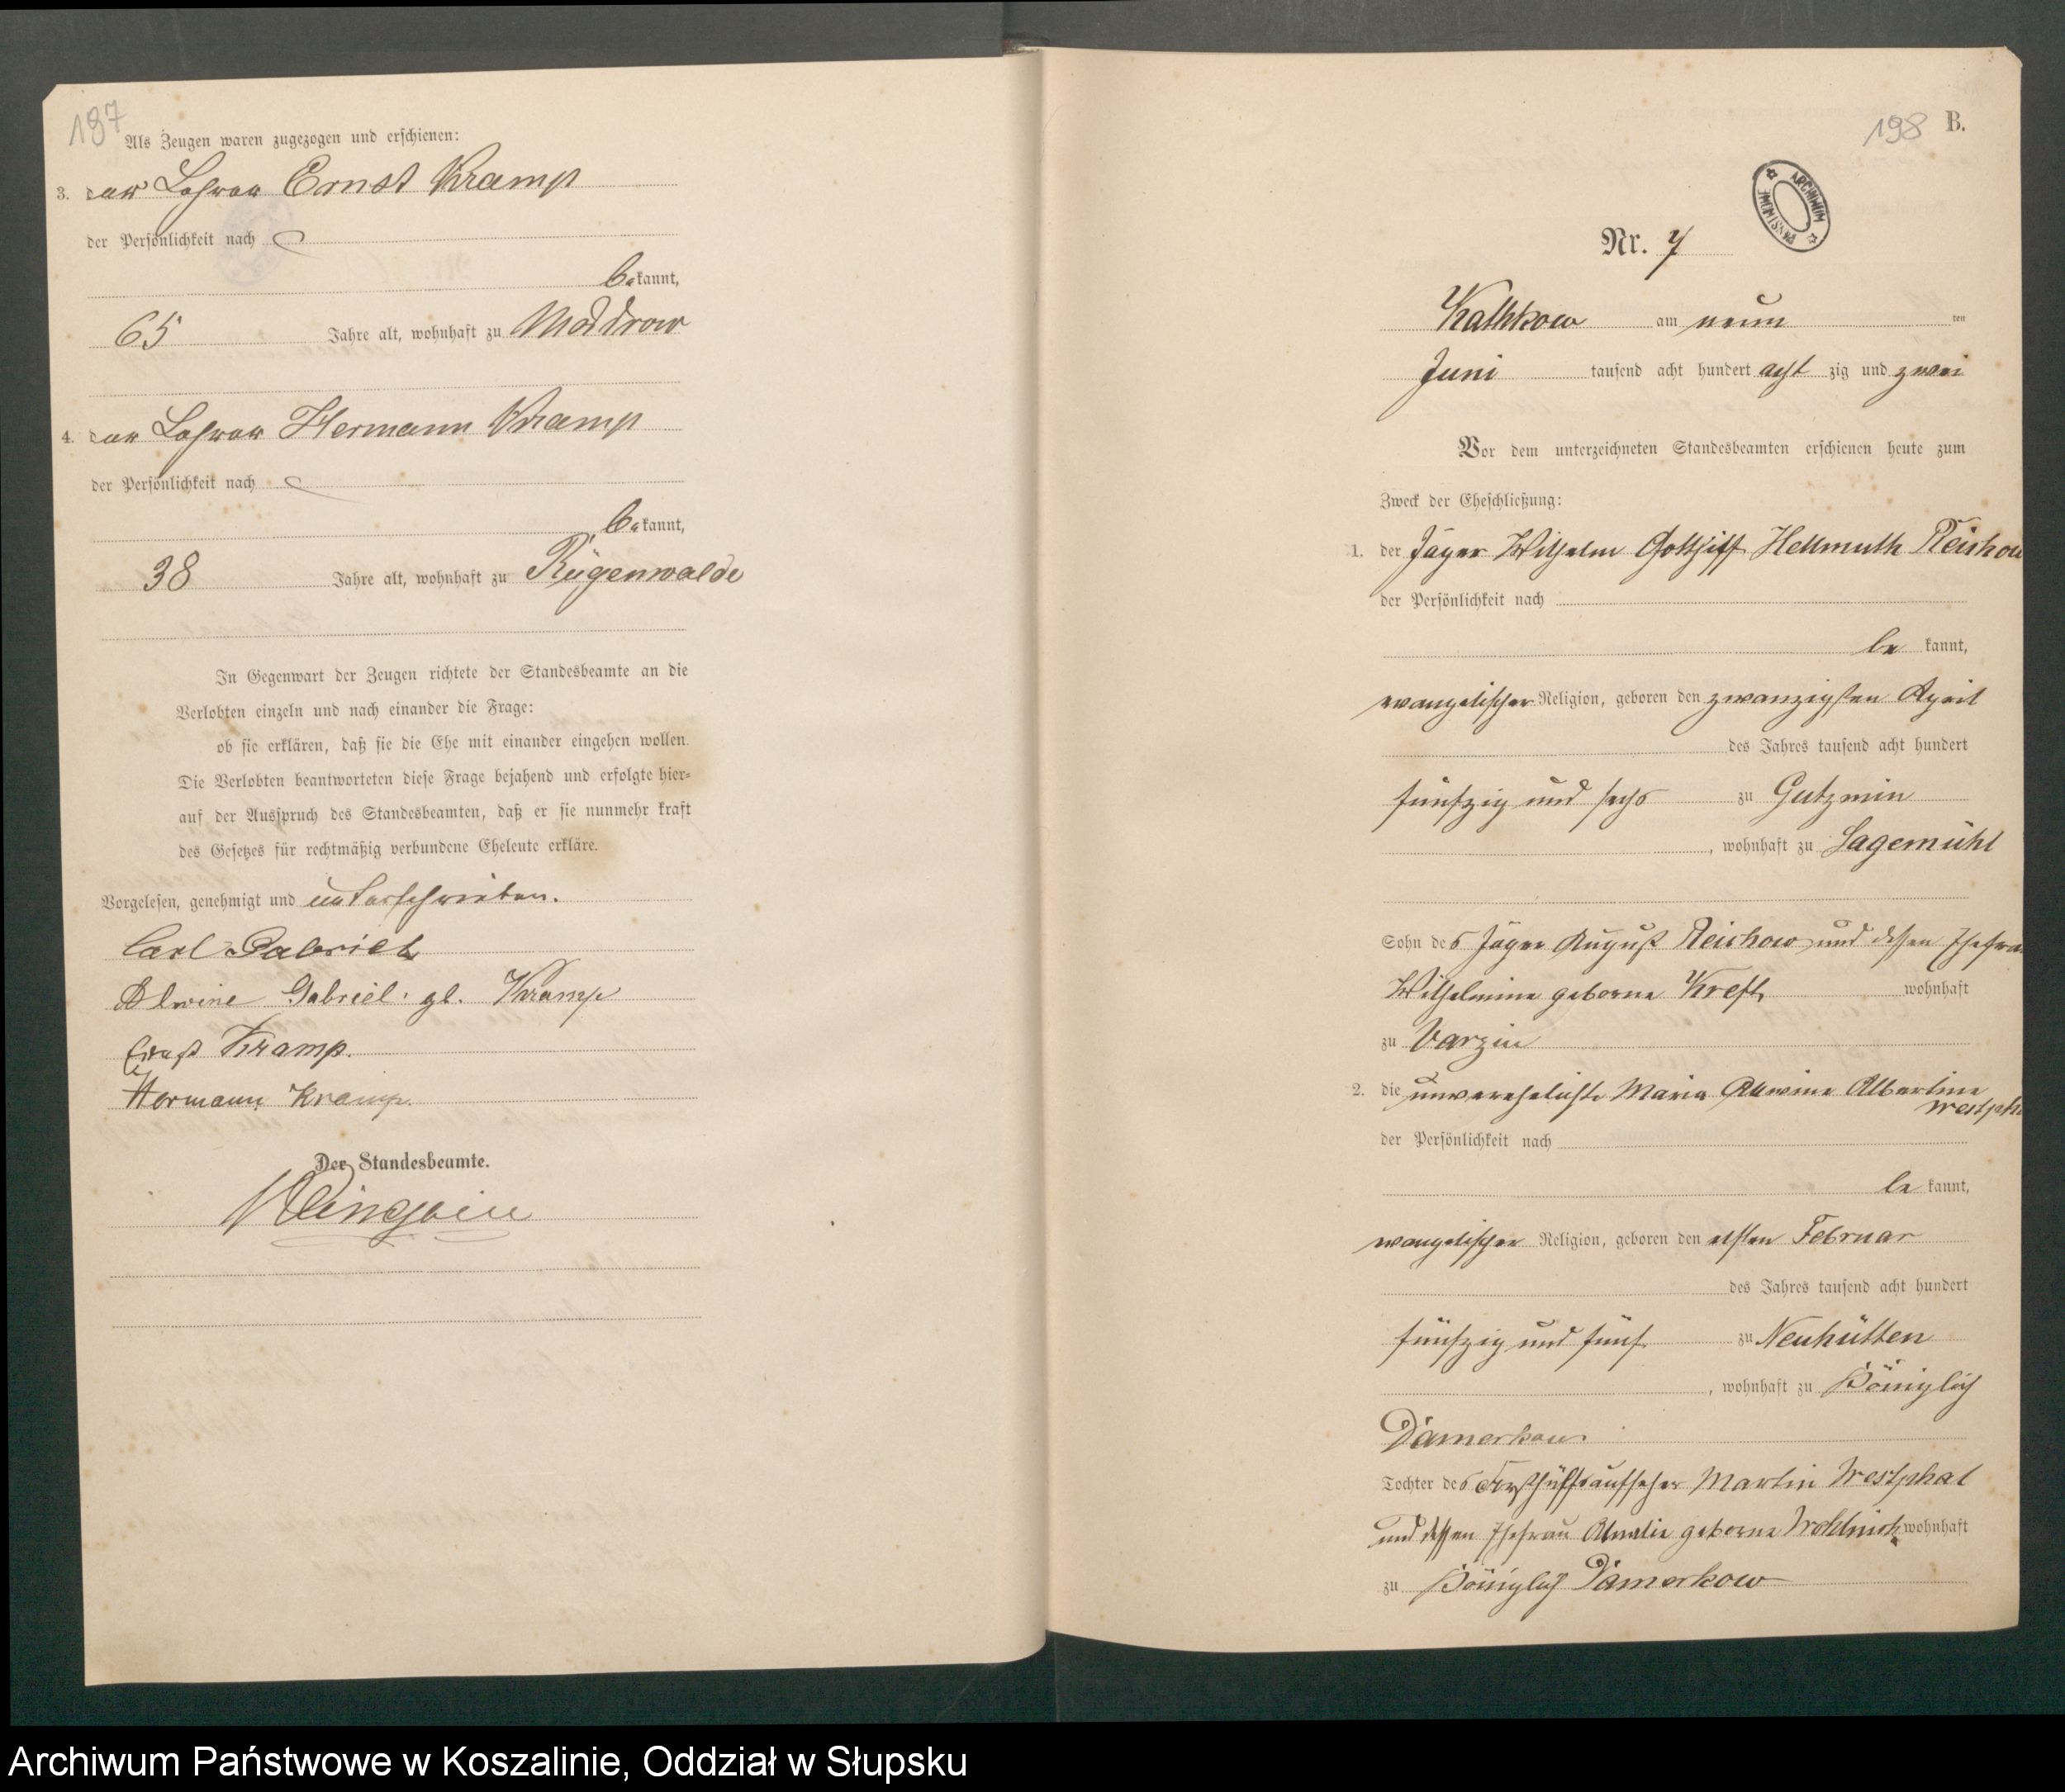 197
Als Zeugen waren zugezogen und erschienen:
3. der Lehrer Ernst Kramp
der Persönlichkeit nach
bekannt,
65 Jahre alt, wohnhaft zu Moddrow
4. der Lehrer Hermann Kramp
der Persönlichkeit nach
bekannt,
38 Jahre alt, wohnhaft zu Rügenwalde
In Gegenwart der Zeugen richtete der Standesbeamte an die
Verlobten einzeln und nach einander die Frage:
ob sie erklären, daß sie die Ehe mit einander eingehen wollen.
Die Verlobten beantworteten diese Frage bejahend und erfolgte hier=
auf der Ausspruch des Standesbeamten, daß er sie nunmehr kraft
des Gesetzes für rechtmäßig verbundene Eheleute erkläre.
Vorgelesen, genehmigt und unterschrieben.
Carl Gabriel
Alwine Gabriel gb. Kramp
Ernst Kramp.
Hermann Kramp.
Der Standesbeamte.
198 B.
ARCHIWUM PAŃSTWOWE
Nr. 7
Kathkow am neun ten
Juni tausend acht hundert acht zig und zwei
Vor dem unterzeichneten Standesbeamten erschienen heute zum
Zweck der Eheschließung:
1. der Jäger Wilhelm Gotthilf Hellmuth Reishow
der Persönlichkeit nach
be kannt,
evangelischer Religion, geboren den zwanzigsten April
des Jahres tausend acht hundert
fünfzig und sechs zu Gutzmin
, wohnhaft zu Sagemühl
Sohn des Jäger August Reishow und dessen Ehefrau
Wilhelmine geborne Kreft, wohnhaft
zu Varzin
2. die unverehelichte Maria Alwine Albertine
Westpha
der Persönlichkeit nach
be kannt,
evangelischer Religion, geboren den elften Februar
des Jahres tausend acht hundert
fünfzig und fünf zu Neuhütten
, wohnhaft zu Königlich
Damerkow
Tochter des Forsthülfsaufseher Martin Westphal
und dessen Ehefrau Amalie geborne wohnhaft
zu Königlich Damerkow
Archiwum Państwowe w Koszalinie, Oddział w Słupsku